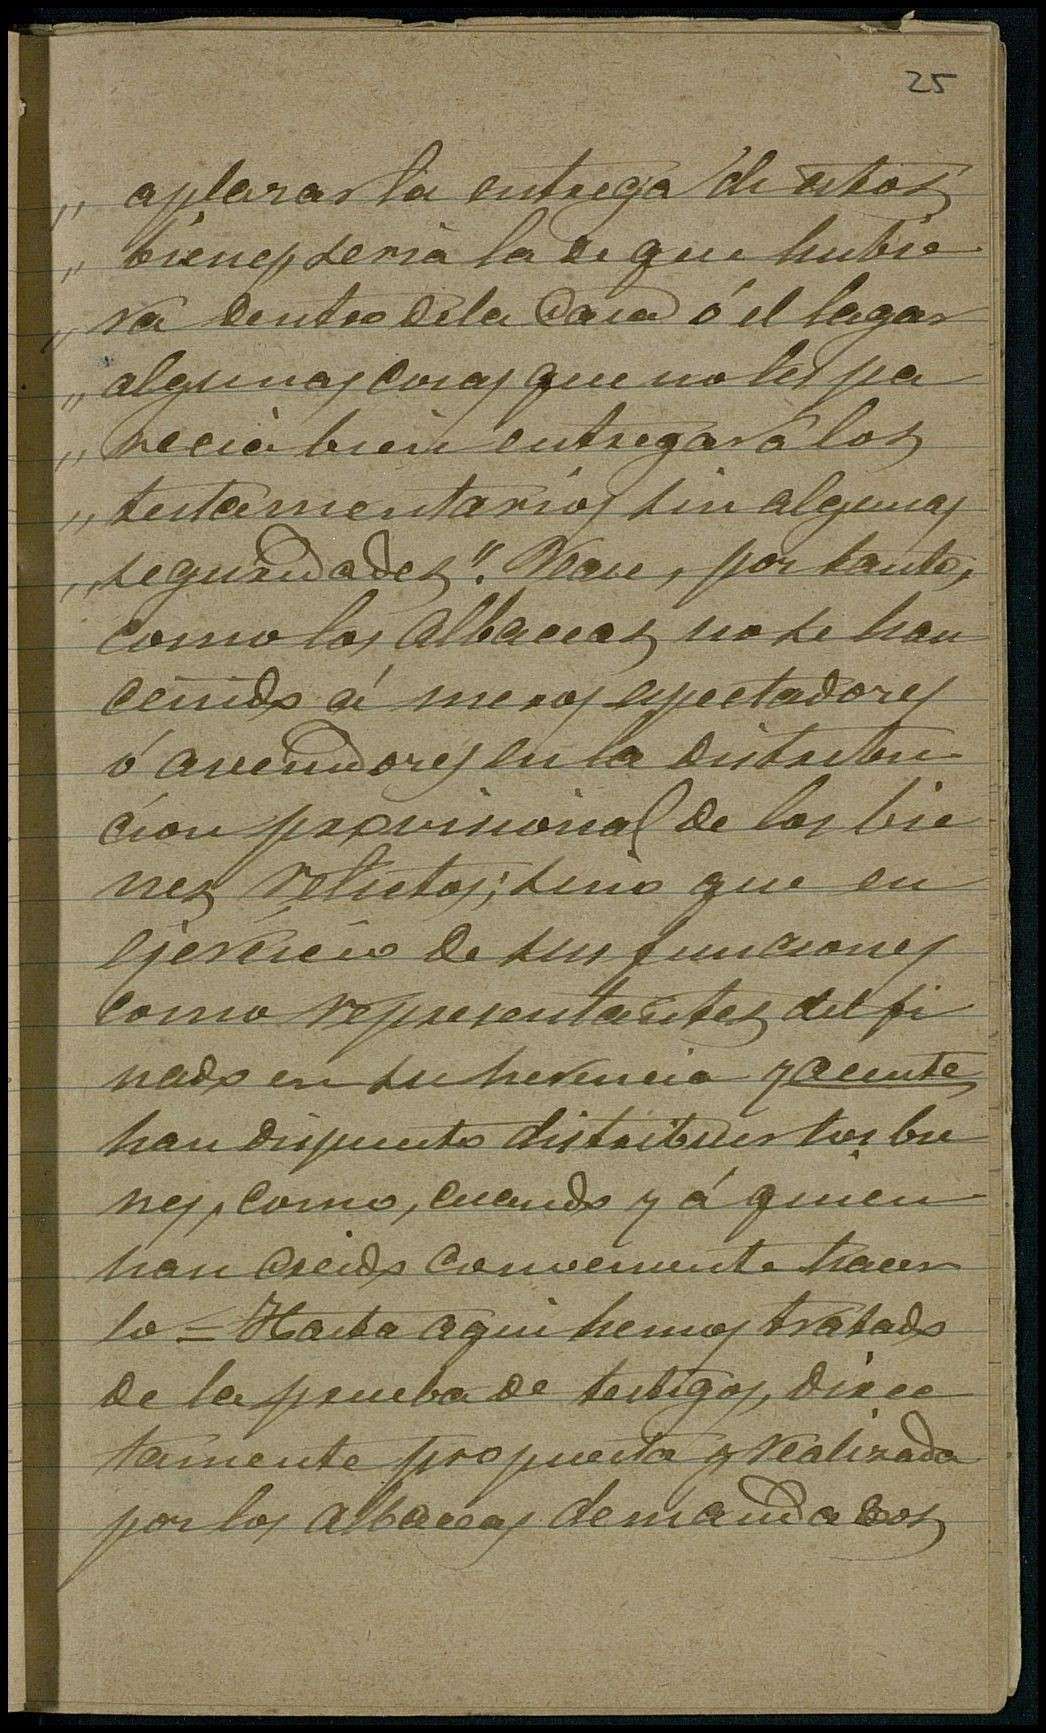 25
„ aplazar la entrega de estos
„ bienes, seria la de que hubie
„ ra dentro de la Casa ó el lagar
„ algunas cosas que no les pa
„ recia bien entregar á los
„ testamentarios sin algunas
„ seguridades". Vease, por tanto,
como los albaceas no se han
ceñido á meros espectadores
ó avenidores en la distribu
cion provisional de los bie
nes relictos; sino que en
ejercicio de sus funciones
como representantes del fi
nado en su herencia yacente
han dispuesto distribuir los bie
nes, como, cuando y á quien
han creido conveniente hacer
lo = Hasta aqui hemos tratado
de la prueba de testigos, direc
tamente propuesta y realizada
por los albaceas demandados